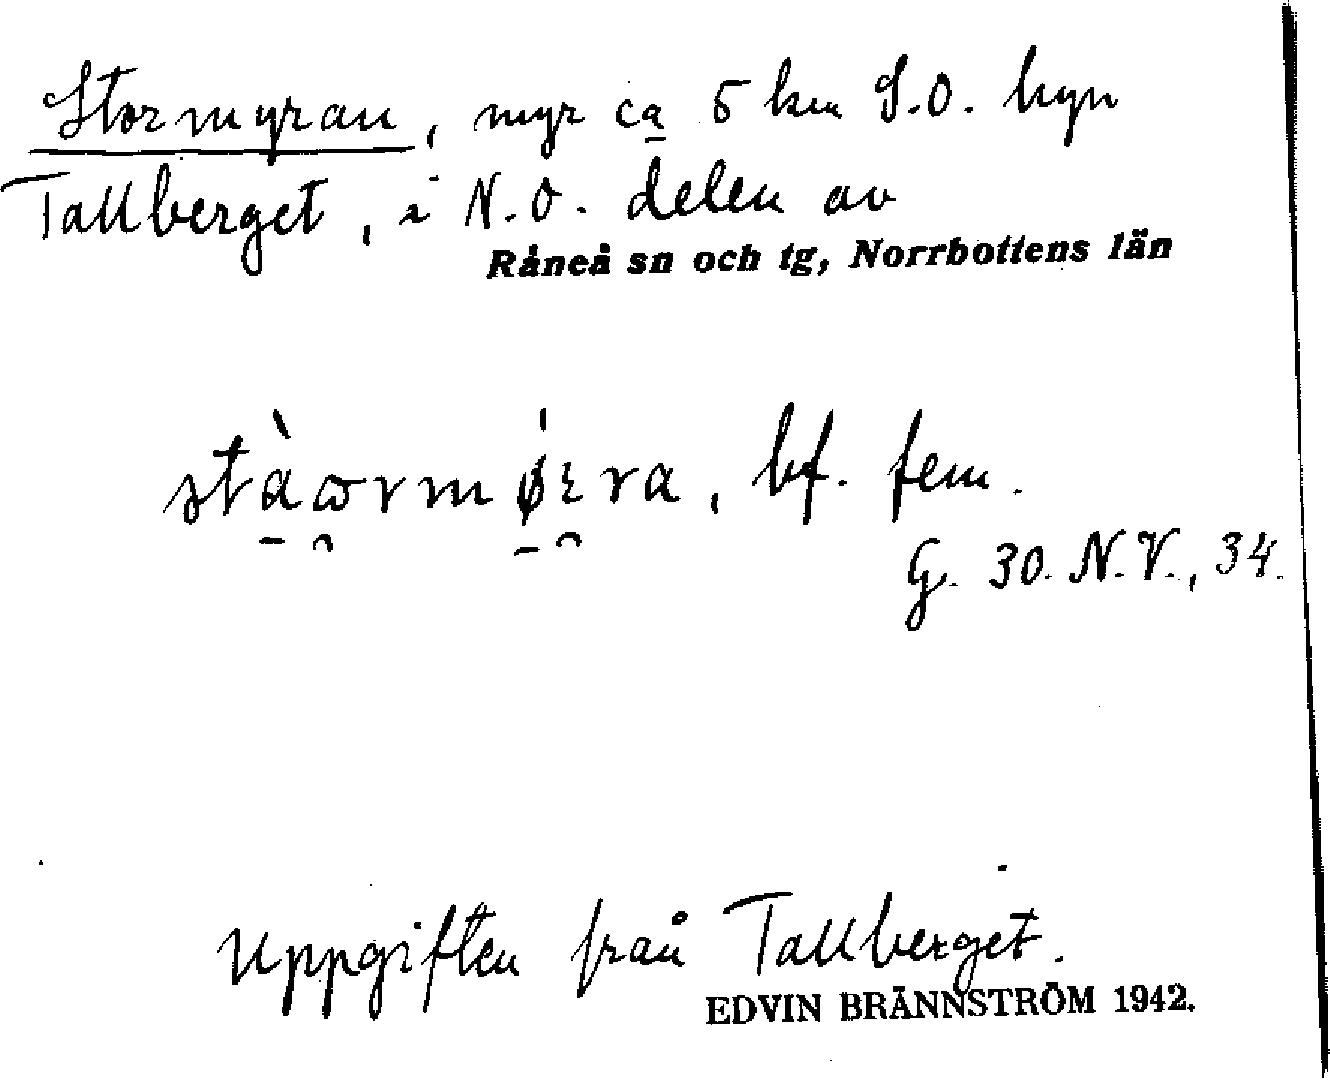 Stormyran, myr ca 5 km S.O. byn
Tallberget, i N.O. delen av
Råneå sn och tg, Norrbottens län
bf. fem.
G. 30. N.V., 34.
Uppgiften från Tallberget.
EDVIN BRÄNNSTRÖM 1942.